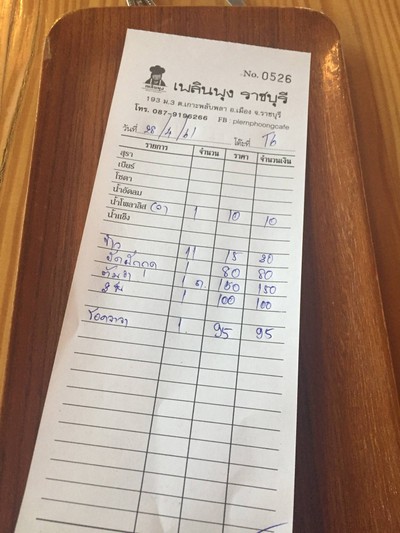 No. 0526
เพลินพุง ราชบุรี
193 ม.3 ต.เกาะพลับพลา อ.เมือง จ.ราชบุรี
โทร. 087-9196266 FB : plernphoongcafe
วันที่ 28/4/61 โต๊ะที่ T6
รายการ จำนวน ราคา จำนวนเงิน
สุรา
เบียร์
โซดา
น้ำอัดลม
น้ำโพลาลิส 1 10 10
น้ำแข็ง
ข้าว 11 15 30
ผัดผักกูด 1 80 80
ต้มยำ 1 150 150
1 100 100
1 95 95